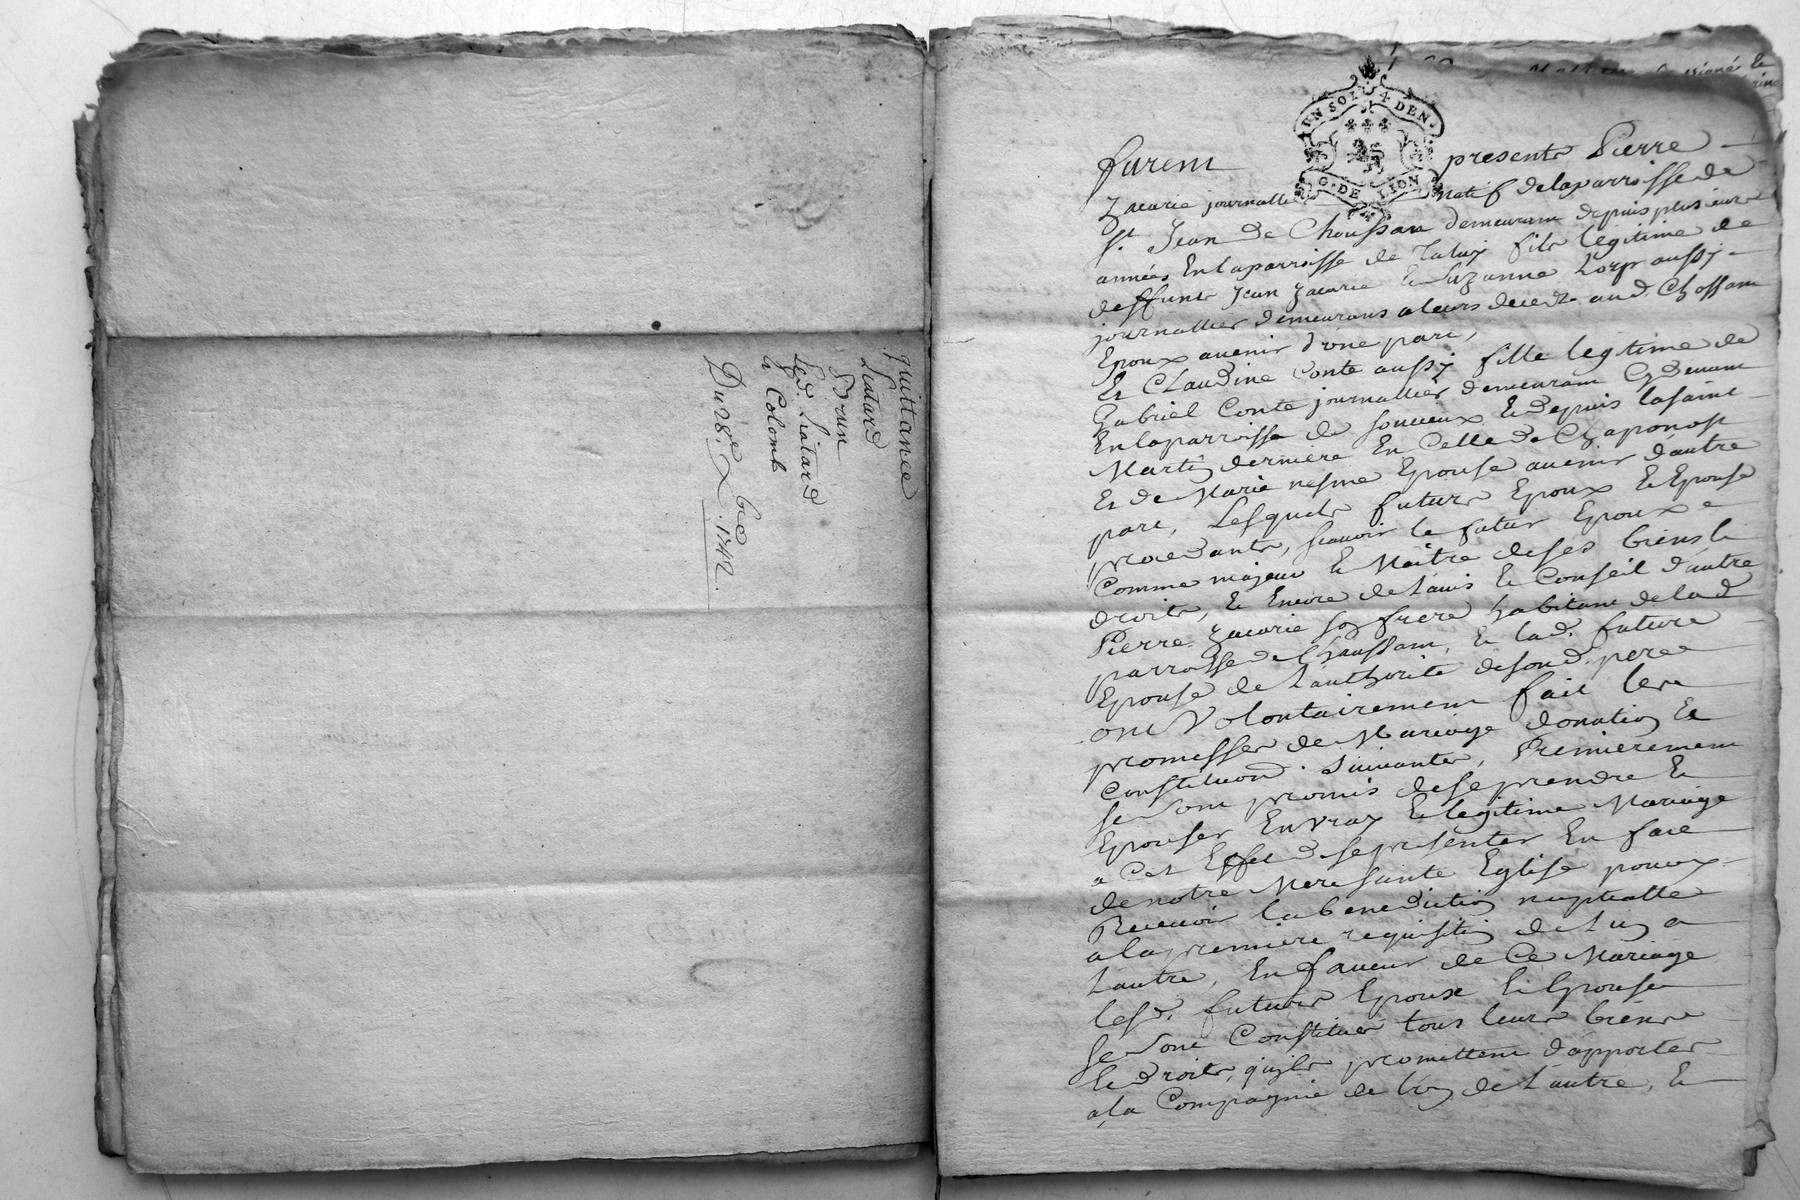 quittance
Liatard
Brun
Led. Liatard
a Colomb
Du 28e Xbre 1742.
UN SOL 4 DEN.
G. DE LION
furent presents Pierre
Zacarie journallier natif de laparroisse de
St. Jean de Chaussan demeurant depuis plusieurs
années En laparroisse de Taluy fils légitime de
deffunts Jean Zacarie & Suzanne aussy
journallier demeurans a leurs decedz aud. Chossam
Epoux avenir d'une part,
Et Claudine Conte aussy fille legitime de
Gabriel Conte journallier demeurant Cydevant
En laparroisse de soucieux & depuis lasaint
Martin derniere En Celle de Chaponost
Et de Marie nesme Epouse avenir d'autre
part, Lesquels futurs Epoux & Epouse
procedants, scavoir le futur Epoux
Comme majeur & Maitre deses biens &
droits, & Encore de Lavis & Conseil d'autre
Pierre Zacarie son frere habitant de lad
parroisse de Chaussam, & lad. future
Epouse de Lauthorité deson d. pere
ont Volontairement fait les
promesses de Mariage donation Et
Constitution. Suivantes, Premierement
se sont promis dese prendre &
Epouser En vray & legitime Mariage
a Cet Effet de se presenter En face
de notre Mere sainte Eglise pour y
Recevoir la benediction nuptialle
a la premiere requisition de Lun a
Lautre, En faveur de Ce Mariage
lesd. futurs Epoux & Epouse
se sont Constitués tous leurs biens
& droits, quils promettent d'apporter
a la Compagnie de l'un de L'autre, &